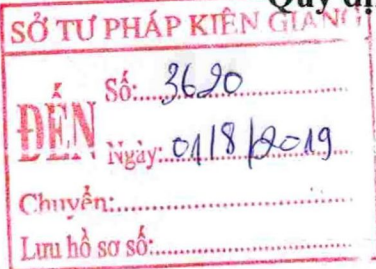 Quy đị
SỞ TƯ PHÁP KIÊN GIANG
ĐẾN
Số:....3620....
Ngày:..01/8/2019..
Chuyển:....
Lưu hồ sơ số:....